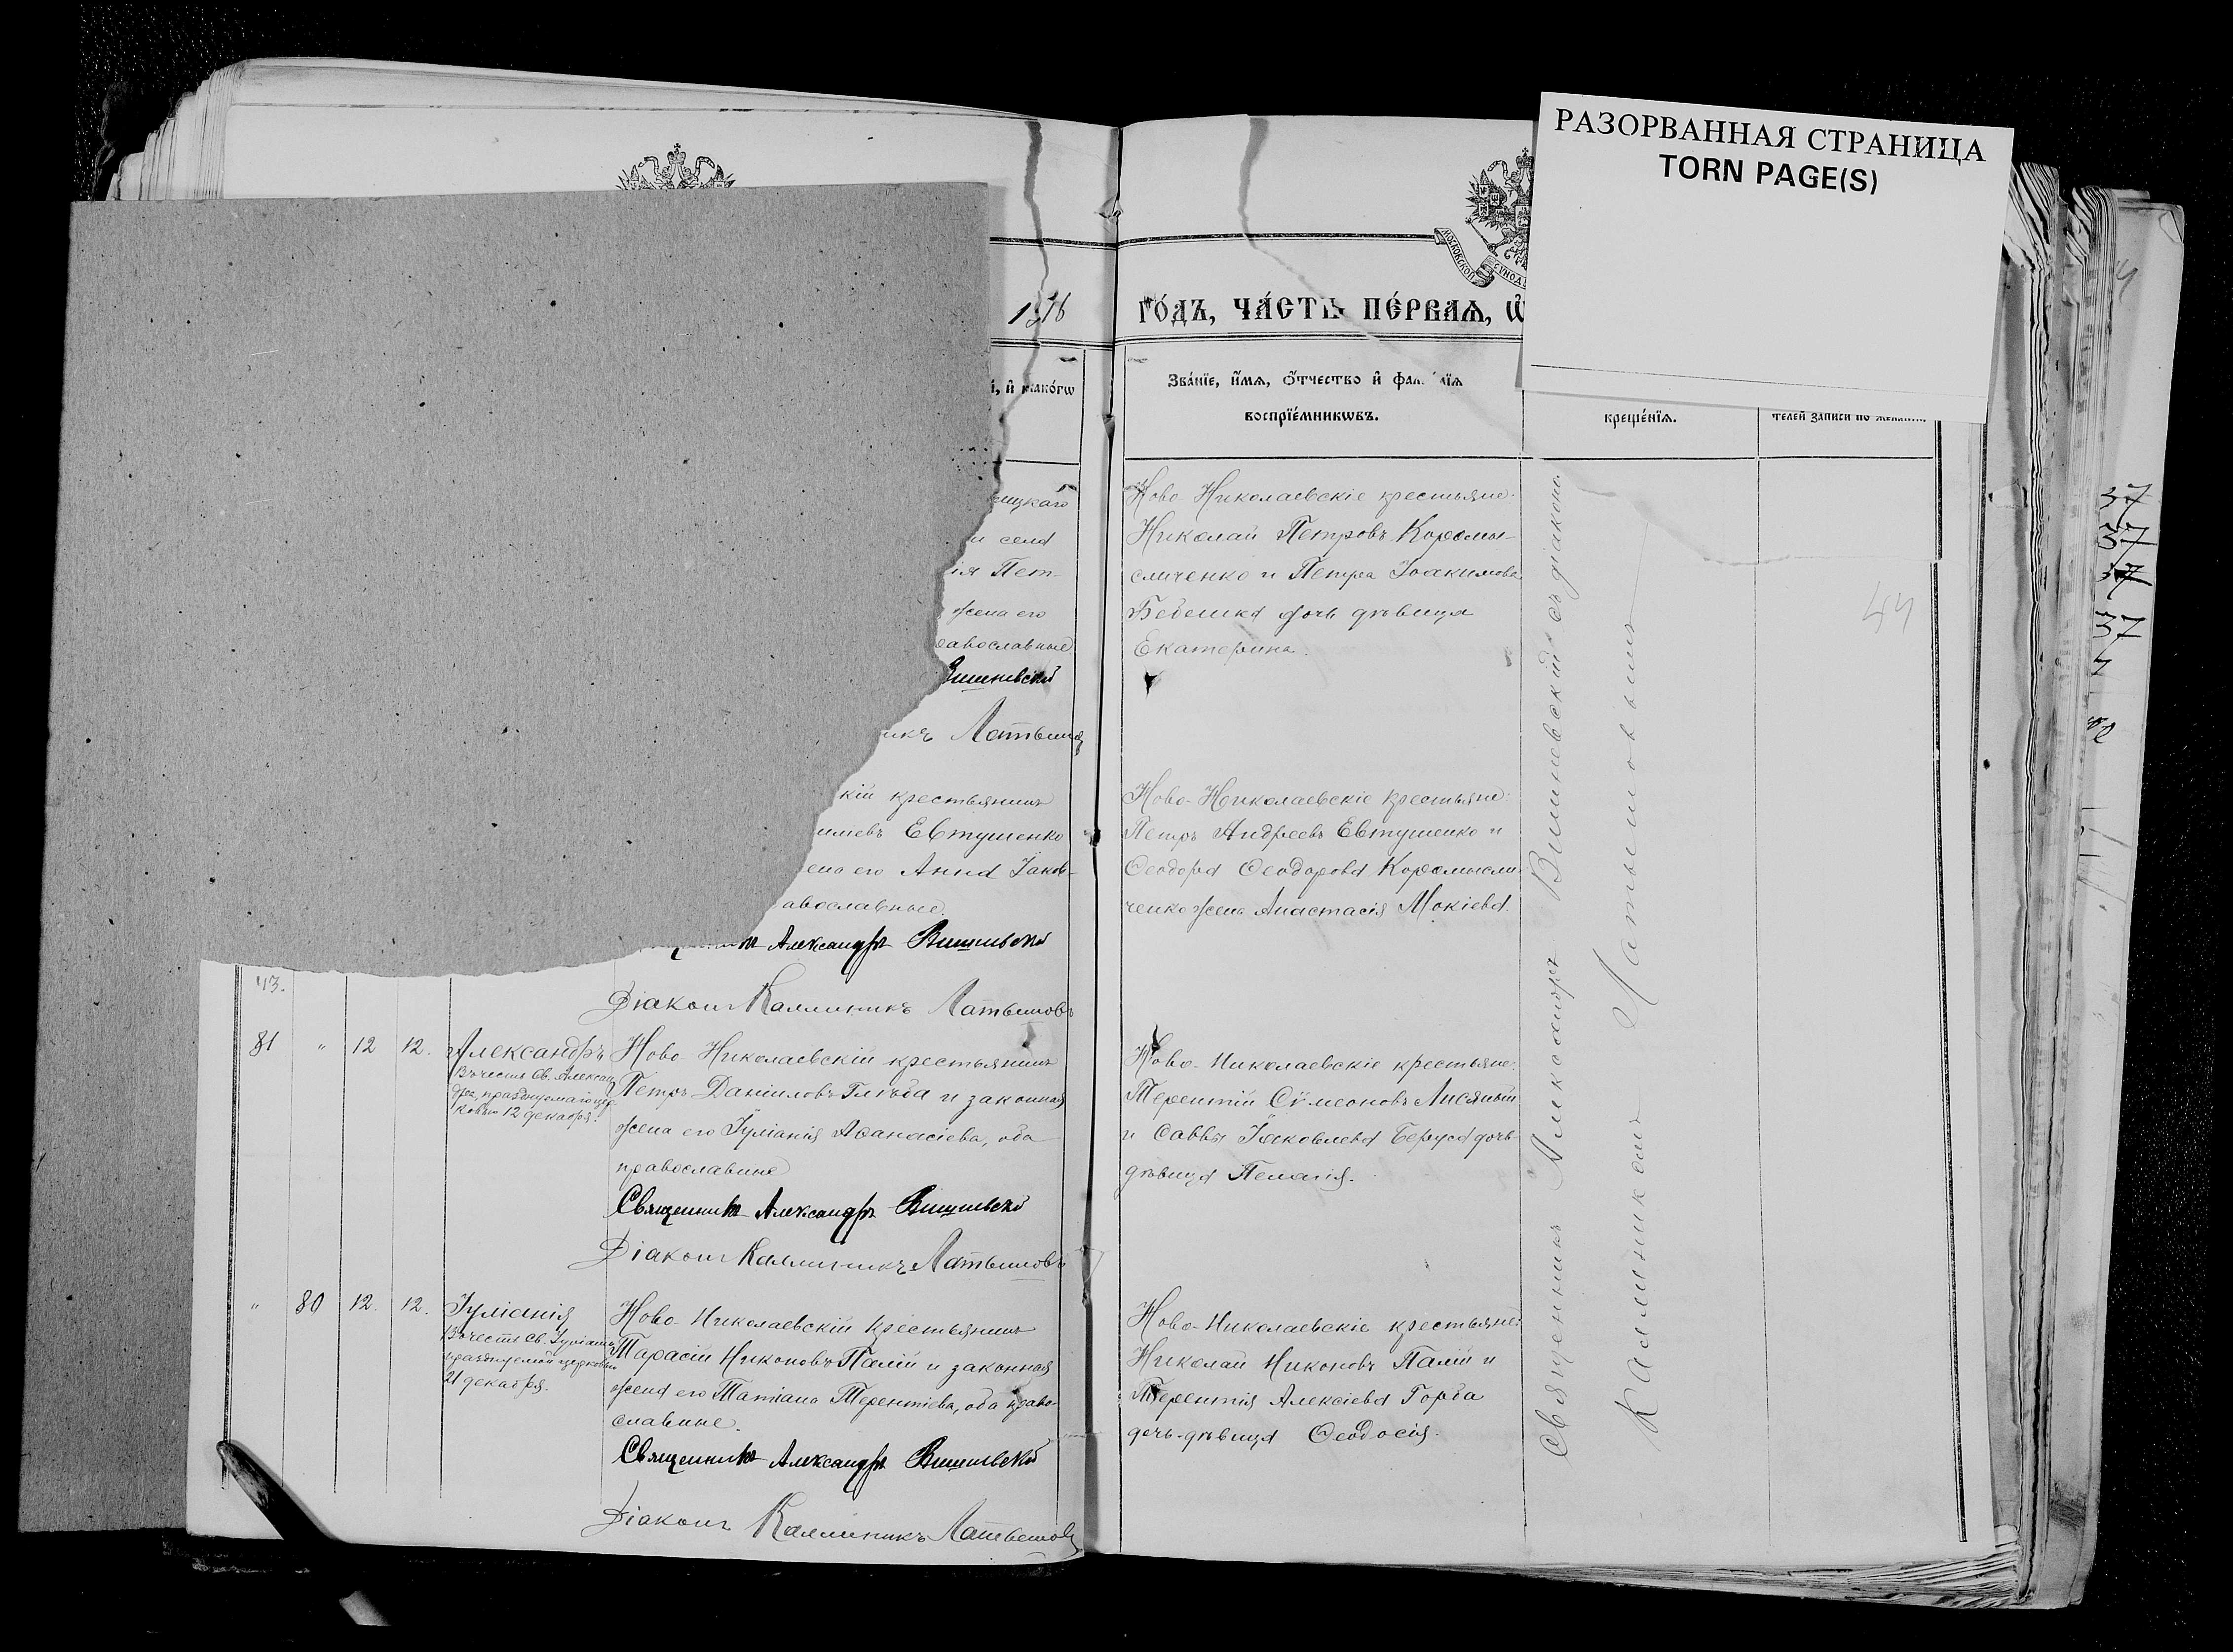 РАЗОРВАННАЯ СТРАНИЦА
TORN PAGE(S)
МОСКОВСКОЙ
СУНОД
1916
ГО́ДЪ, ЧА́СТЬ ПЕ́РВАЯ, Ѡ
и҆ како́гѡ
Зва́нїе, и҆́мѧ, ѻ҆́тчество и҆ фамилїѧ
воспрїе́мникѡвъ.
креще́нїѧ.
телей записи по
ицкаго
и села
ія Пет-
жена его
равославные
Вишневскій
икъ Латышовъ
Ново Николаевскіе крестьяне:
Николай Петровъ Коромы-
сличенко и Петра Іоакимова
дочь дѣвица
Екатерина.
44
кій крестьянинъ
иліевъ Евтушенко
ена его Анна Іаков-
авославные.
Александръ Вишневскій
Діаконъ Каллиникъ Латышовъ
Ново-Николаевскіе крестьяне:
Петръ Андреевъ Евтушенко и
Ѳеодора Ѳеодорова Коромысли-
ченко жена Анастасія Мокіева.
43.
81 " 12 12. Александръ
Въ честь Св. Алексан-
дра, празднуемаго цер-
ковью 12 декабря.
Ново Николаевскій крестьянинъ
Петръ Даніиловъ Глѣба и законная
жена его Іуліанія Аѳанасіева, оба
православные
Священникъ Александръ Вишневскій
Діаконъ Каллиникъ Латышовъ
Ново-Николаевскіе крестьяне:
Терентій Сѵмеоновъ Лисяный
и Саввы Іаковлева Беруса дочь-
дѣвица Пелагія.
" 80 12. 12. Іуліанія
Въ честь Св. Іуліаніи,
празднуемой церковью
21 декабря.
Ново-Николаевскій крестьянинъ
Тарасій Никоновъ Палій и законная
жена его Татіана Терентіева, оба право-
славные.
Священникъ Александръ Вишневскій
Діаконъ Каллиникъ Латышовъ
Ново-Николаевскіе крестьяне:
Николай Никоновъ Палій и
Терентія Алексіева Горба
дочь-дѣвица Ѳеодосія.
Священникъ Александръ Вишневскій съ діакономъ
Каллиникомъ Латышовымъ
37
37
37
37